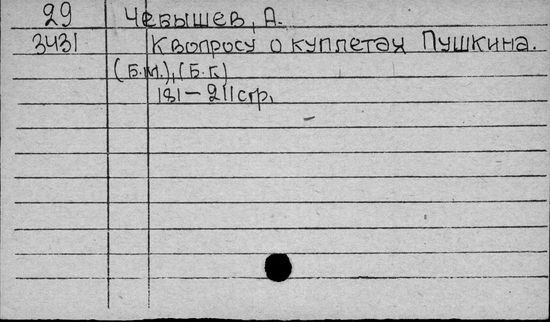 29 Чебышев, А.
3431 К вопросу о куплетах Пушкина.
(Б.М.), (Б.Г.)
181-211 стр.